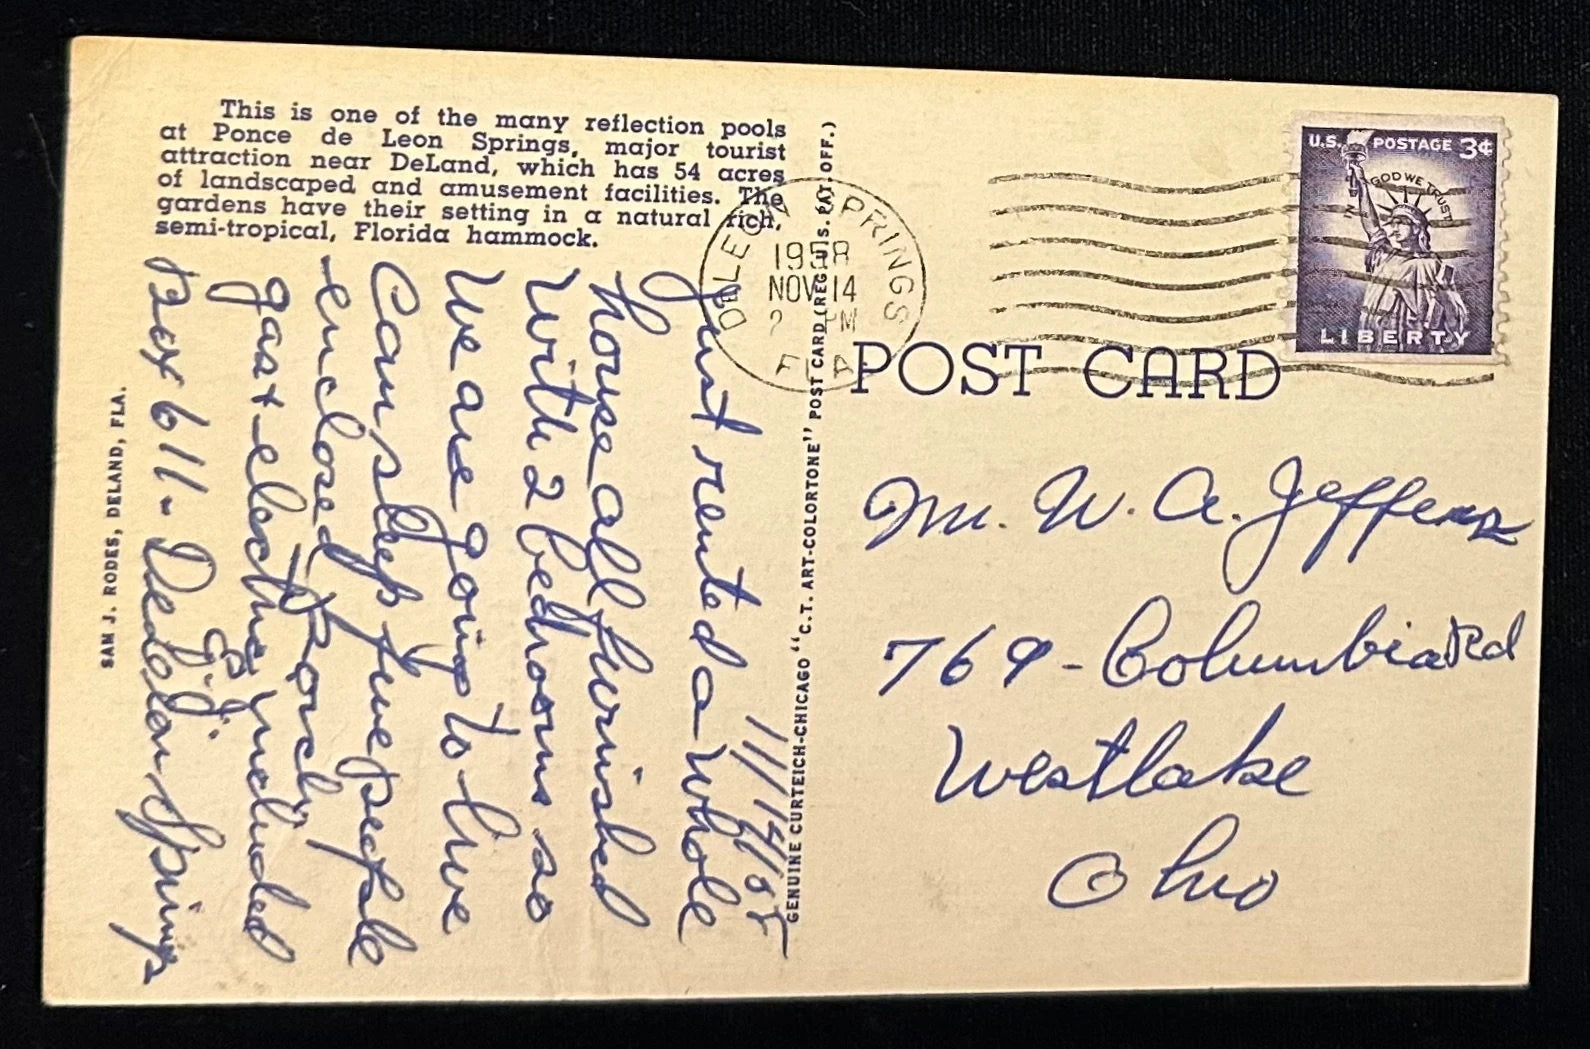 This is one of the many reflection pools
at Ponce de Leon Springs, major tourist
attraction near DeLand, which has 54 acres
of landscaped and amusement facilities. The
gardens have their setting in a natural rich,
semi-tropical, Florida hammock.
SAM J. RODES, DELAND, FLA.
11/14/58
Just rented a whole
house all furnished
with 2 bedrooms so
We are going to live
Can sleep five people
enclosed Porch
gas + electric included
E.J.
Box 611 - DeLeon Springs
GENUINE CURTEICH-CHICAGO "C.T. ART-COLORTONE" POST CARD (REG. U.S. PAT. OFF.)
DELEON SPRINGS
1958
NOV 14
2 PM
FLA
U.S. POSTAGE 3¢
IN GOD WE TRUST
LIBERTY
POST CARD
Mr. W. A. Jeffers
769 - Columbia Rd
Westlake
Ohio